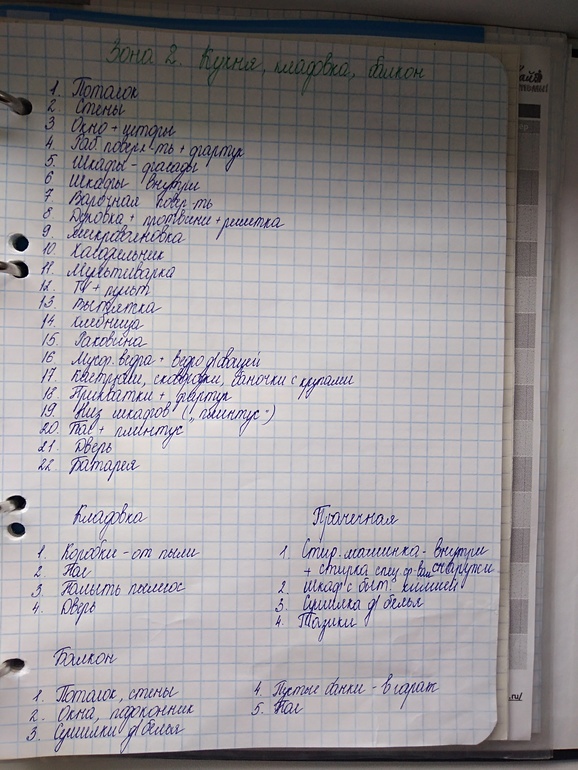 Зона 2. Кухня, кладовка, балкон
1. Потолок
2 Стены
3 Окно + шторы
4 Раб. поверх-ть + фартук
5. Шкафы - фасады
6 Шкафы внутри
7 Варочная повер-ть
8 Духовка + противни + решетка
9. Микроволновка
10. Холодильник
11. Мультиварка
12. TV + пульт
13. Вытяжка
14. Хлебница
15. Раковина
16 Мусор. ведра + ведро д/овощей
17. Кастрюли, сковородки, баночки с крупами
18 Прихватки + фартук
19 Низ шкафов („плинтус“)
20. Пол + плинтус
21. Дверь
22 Батарея
Кладовка
1. Коробки - от пыли
2. Пол
3 Помыть пылесос
4. Дверь
Прачечная
1. Стир. машинка - внутри
+ стирка спец. ср-вом снаружи
2. Шкаф с быт. химией
3. Сушилка д/белья
4. Тазики
Балкон
1. Потолок, стены
2. Окна, подоконник
3. Сушилки д/белья
4. Пустые банки - в гараж
5. Пол
ru/